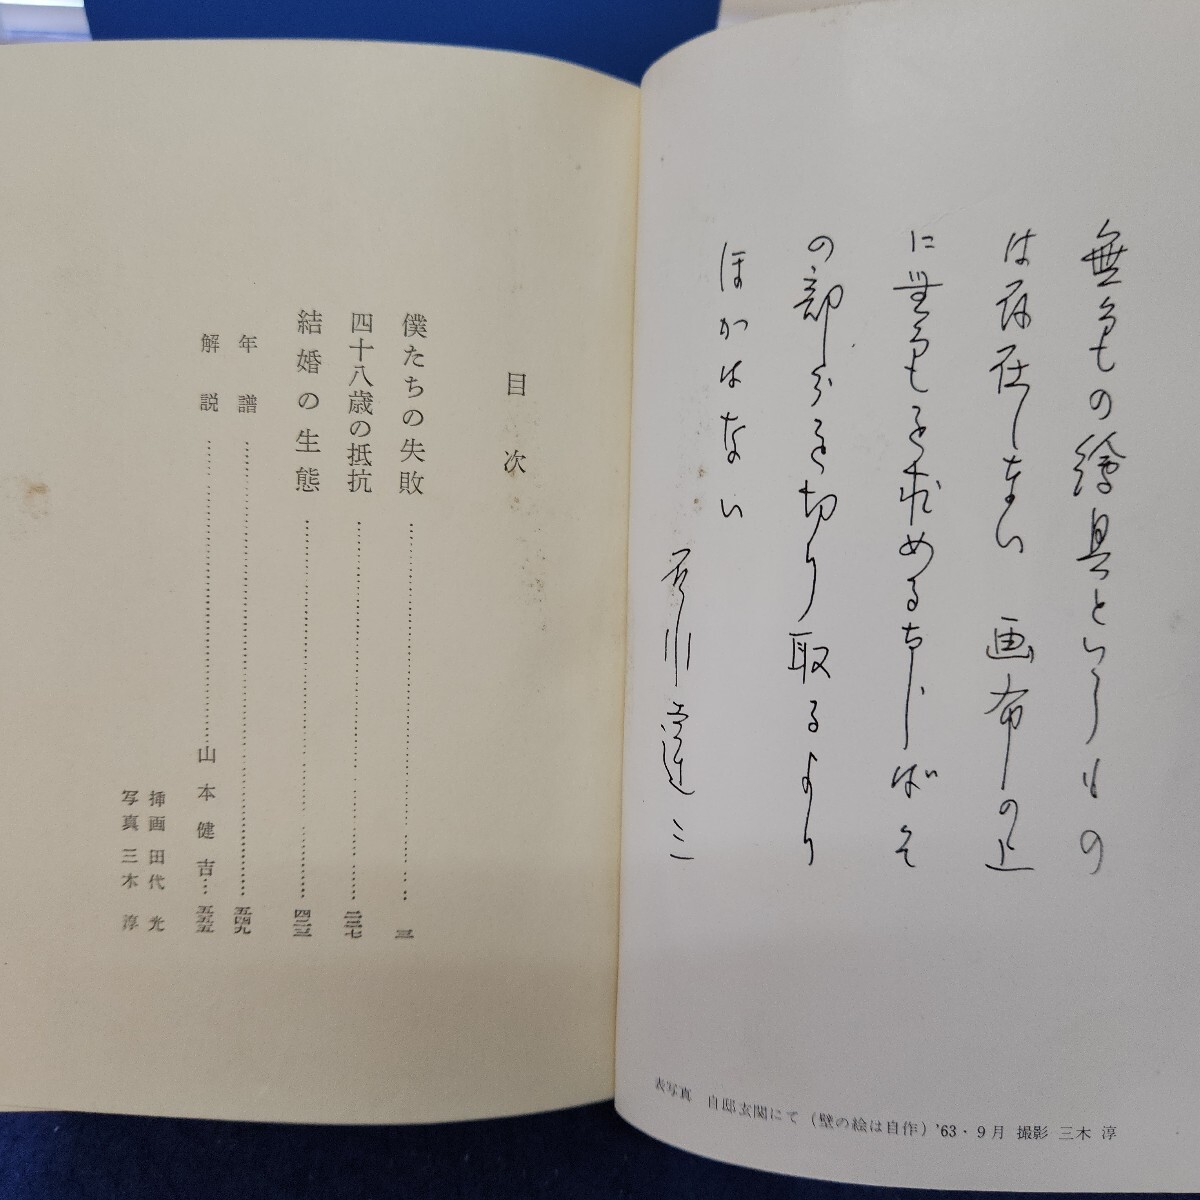 無色の繪具というもの
は存在しない 画布の上
に無色を求めるならばそ
の部分を切り取るより
ほかはない
石川達三
表写真 自邸玄関にて（壁の絵は自作）'63・9月 撮影 三木 淳
目次
僕たちの失敗…………三
四十八歳の抵抗…………二二七
結婚の生態…………四二三
年譜…………五四九
解説…………山本健吉…五五五
挿画 田代 光
写真 三木 淳